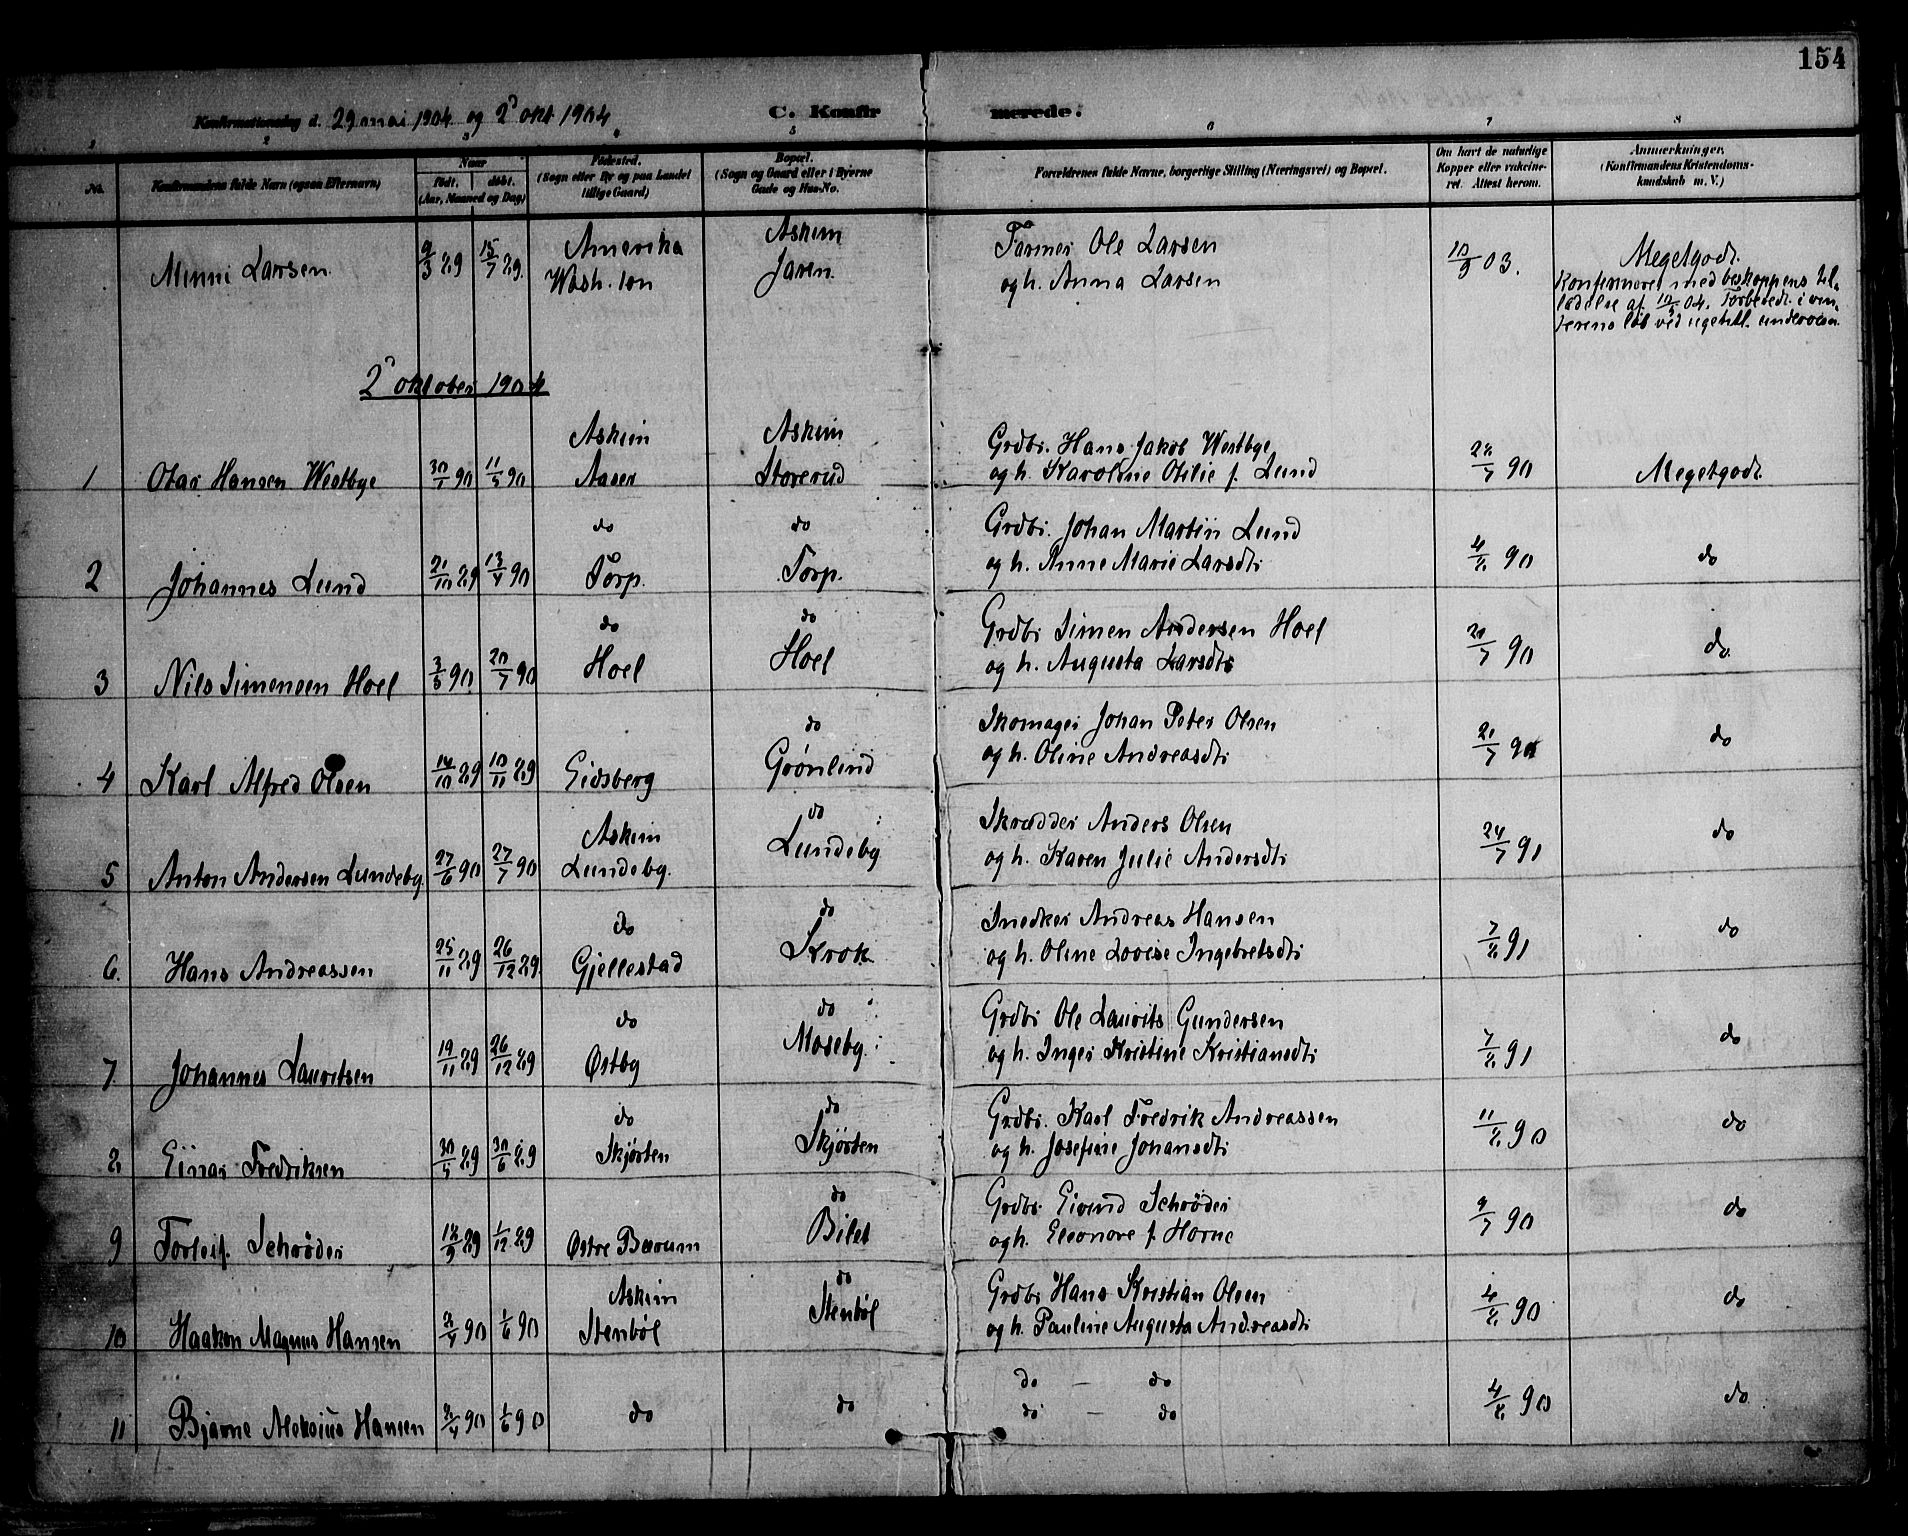 154
Konfirmationsdag d. 29 mai 1904 og 2d okt 1904.
C. Konfirmerede.
2 3 4 5 6 7 8
No.
Konfirmandens fulde Navn (ogsaa Efternavn)
Naar
født. døbt.
(Aar, Maaned og Dag)
Fødested.
(Sogn eller By og paa Landet
tillige Gaard)
Bopæl.
(Sogn og Gaard eller i Byerne
Gade og Hus-No.
Forældrenes fulde Navne, borgerlige Stilling (Næringsvei) og Bopæl.
Om havt de naturlige
Kopper eller vakcine-
ret. Attest herom.
Anmærkninger.
(Konfirmandens Kristendoms-
kundskab m. V.)
Minni Larsen. 9/3 89 15/7 89. Amerika Wash.ton Askim Jaren. Farmer Ole Larsen
og h. Anna Larsen 10/9 03. Megetgodt.
Konfirmeret med biskoppens til-
ladelse af 10/5 04. Forberedt i vin-
terens løb ved ugentl. undervisn.
2d oktober 1904
1 Otar Hansen Westbye 30/1 90 11/5 90 Askim Aaser Askim Storerud Grdbr. Hans Jakob Westbye
og h. Karoline Otilie f. Lund 28/7 90 Megetgodt.
2 Johannes Lund 21/10 89 13/4 90 do Torp. do Torp. Grdbr. Johan Martin Lund
og h. Anne Marie Larsdtr 4/8 90 do
3 Nils Simensen Hoel 3/5 90 20/7 90 do Hoel do Hoel Grdbr Simen Andersen Hoel
og h. Augusta Larsdtr 21/7 90 do.
4 Karl Alfred Olsen 14/10 89 10/11 89 Eidsberg do Grønlund Skomager Johan Peter Olsen
og h. Oline Andreasdtr 21/7 91 do
5 Anton Andersen Lundeby. 27/6 90 27/7 90 Askim Lundeby. do Lundeby Skrædder Anders Olsen
og h. Karen Julie Andersdtr 24/7 91 do
6. Hans Andreassen 25/11 89 26/12 89. do Gjellestad do Krok Snedker Andreas Hansen
og h. Oline Lovise Ingebretsdtr 7/8 91 do
7 Johannes Lauritsen 19/11 89 26/12 89 do Østby do Moseby. Grdbr Ole Laurits Gundersen
og h. Inger Kristine Kristiansdtr 7/8 91 do
8 Einar Fredriksen 30/5 89 30/6 89 do Skjørten do Skjørten Grdbr. Karl Fredrik Andreassen
og h. Josefine Johansdtr 11/8 90 do
9 Torleif Schrøder 18/9 89 1/12 89 Østre Bærum do Bilet Grdbr. Eivind Schrøder
og h. Eleonore f. Horne 9/7 90 do
10 Haakon Magnus Hansen 8/4 90 1/6 90 Askim Stenbøl do Stenbøl Grdbr Hans Kristian Olsen
og h. Pauline Augusta Andreasdtr 4/8 90 do
11 Bjarne Aleksius Hansen 8/4 90 1/6 90 do do do – do
do – do 4/8 90 do